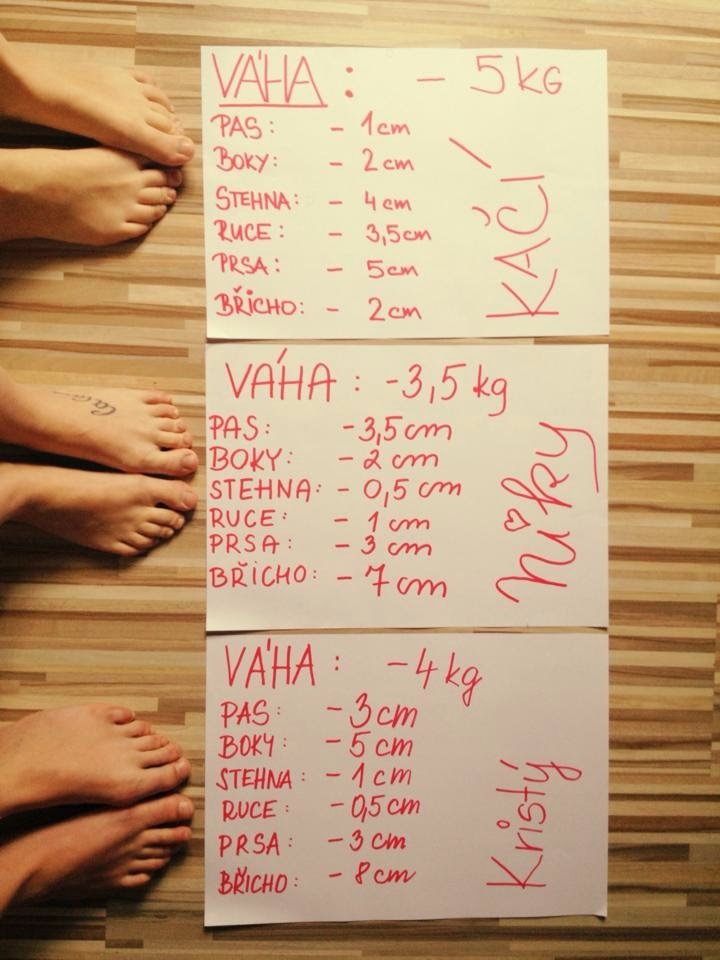 VÁHA: - 5 kG
PAS: - 1cm
BOKY: - 2cm
STEHNA: - 4cm
RUCE: - 3,5cm
PRSA: - 5cm
BŘICHO: - 2cm
KAČÍ
VÁHA: -3,5 kg
PAS: -3,5 cm
BOKY: - 2 cm
STEHNA: - 0,5 cm
RUCE: - 1 cm
PRSA: - 3 cm
BŘICHO: - 7 cm
Niky
VÁHA: -4 kg
PAS: -3cm
BOKY: -5cm
STEHNA: -1cm
RUCE: -0,5cm
PRSA: -3cm
BŘICHO: - 8cm
Kristý